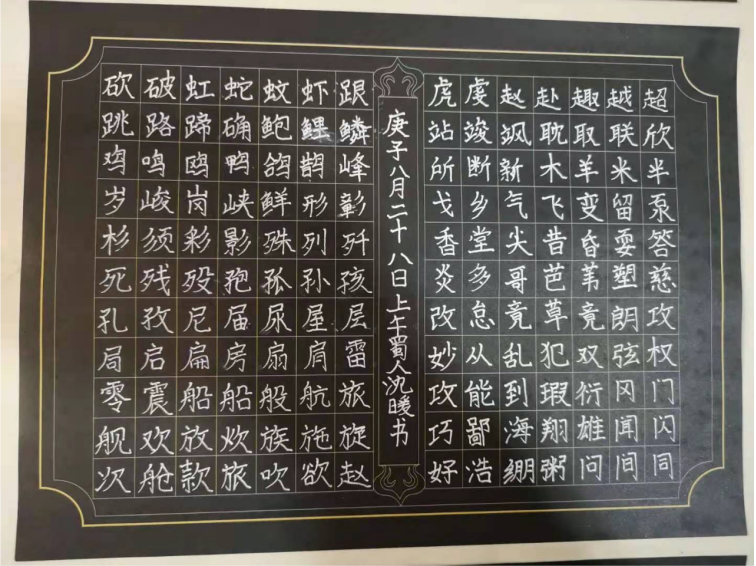 砍破虹蛇蚊虾跟
跳路蹄确鲍鲤鳞
鸡鸣鸥鸭鸽鹊峰
岁峻岗峡鲜形彰
杉须彩影殊列歼
死残殁孢孤孙孩
孔孜尼届尿屋层
局启扁房扇肩雷
零震船船般航旅
舰欢放炊族施旋
次舱款旅吹欲赵
庚子八月二十八日上午蜀人沈暖书
虎虔赵赴趣越超
站竣飒耽取联欣
所断新木羊米半
戈乡气飞变留泵
香堂尖昔昏耍答
炎多哥芭苇塑慈
改怠竟草竟朗攻
妙从乱犯双弦权
攻能到瑕衍冈门
巧鄙海翔雄闻闪
好浩绷粥问间同